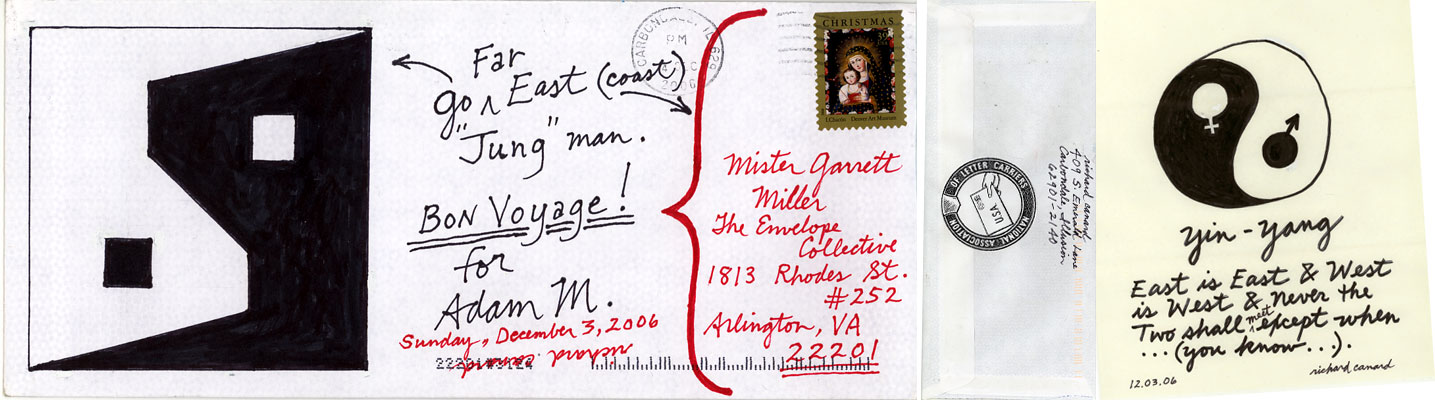 Far
Go ^ East (coast)
"Jung" man.
Bon Voyage!
for
Adam M.
Sunday, December 3, 2006
richard canard
CARBONDALE, IL 629
PM
2006
CHRISTMAS
I. Chacón Denver Art Museum
Mister Garrett
Miller
The Envelope
Collective
1813 Rhodes St.
#252
Arlington, VA
22201
NATIONAL ASSOCIATION OF LETTER CARRIERS
USA
richard canard
409 S. Emerald Lane
Carbondale, Illusion
62901-2140
Yin-Yang
East is East & West
is West & Never the
Two shall ^meet except when
...(you know...).
richard canard
12.03.06